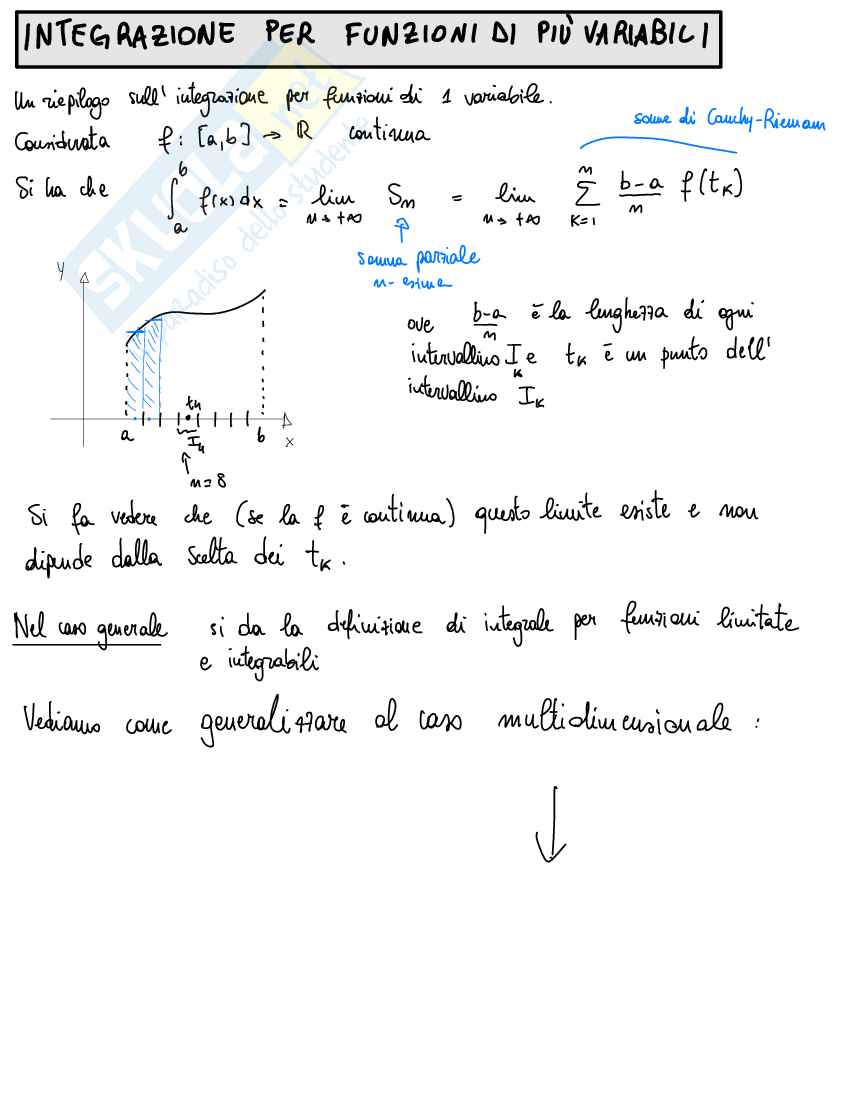 INTEGRAZIONE PER FUNZIONI DI PIÙ VARIABILI
Un riepilogo sull' integrazione per funzioni di 1 variabile.
Considerata f: [a,b] → ℝ continua
somme di Cauchy-Riemann
Si ha che ∫_a^b f(x)dx = lim_{n→+∞} S_n = lim_{n→+∞} Σ_{K=1}^n (b-a)/n f(t_K)
somma parziale
n-esima
y
ove (b-a)/n è la lunghezza di ogni
intervallino I_K e t_K è un punto dell'
intervallino I_K
t_4
a I_4 b x
n=8
Si fa vedere che (se la f è continua) questo limite esiste e non
dipende dalla scelta dei t_K.
Nel caso generale si da la definizione di integrale per funzioni limitate
e integrabili
Vediamo come generalizzare al caso multidimensionale :
SKUOLA.net
paradiso dello studente